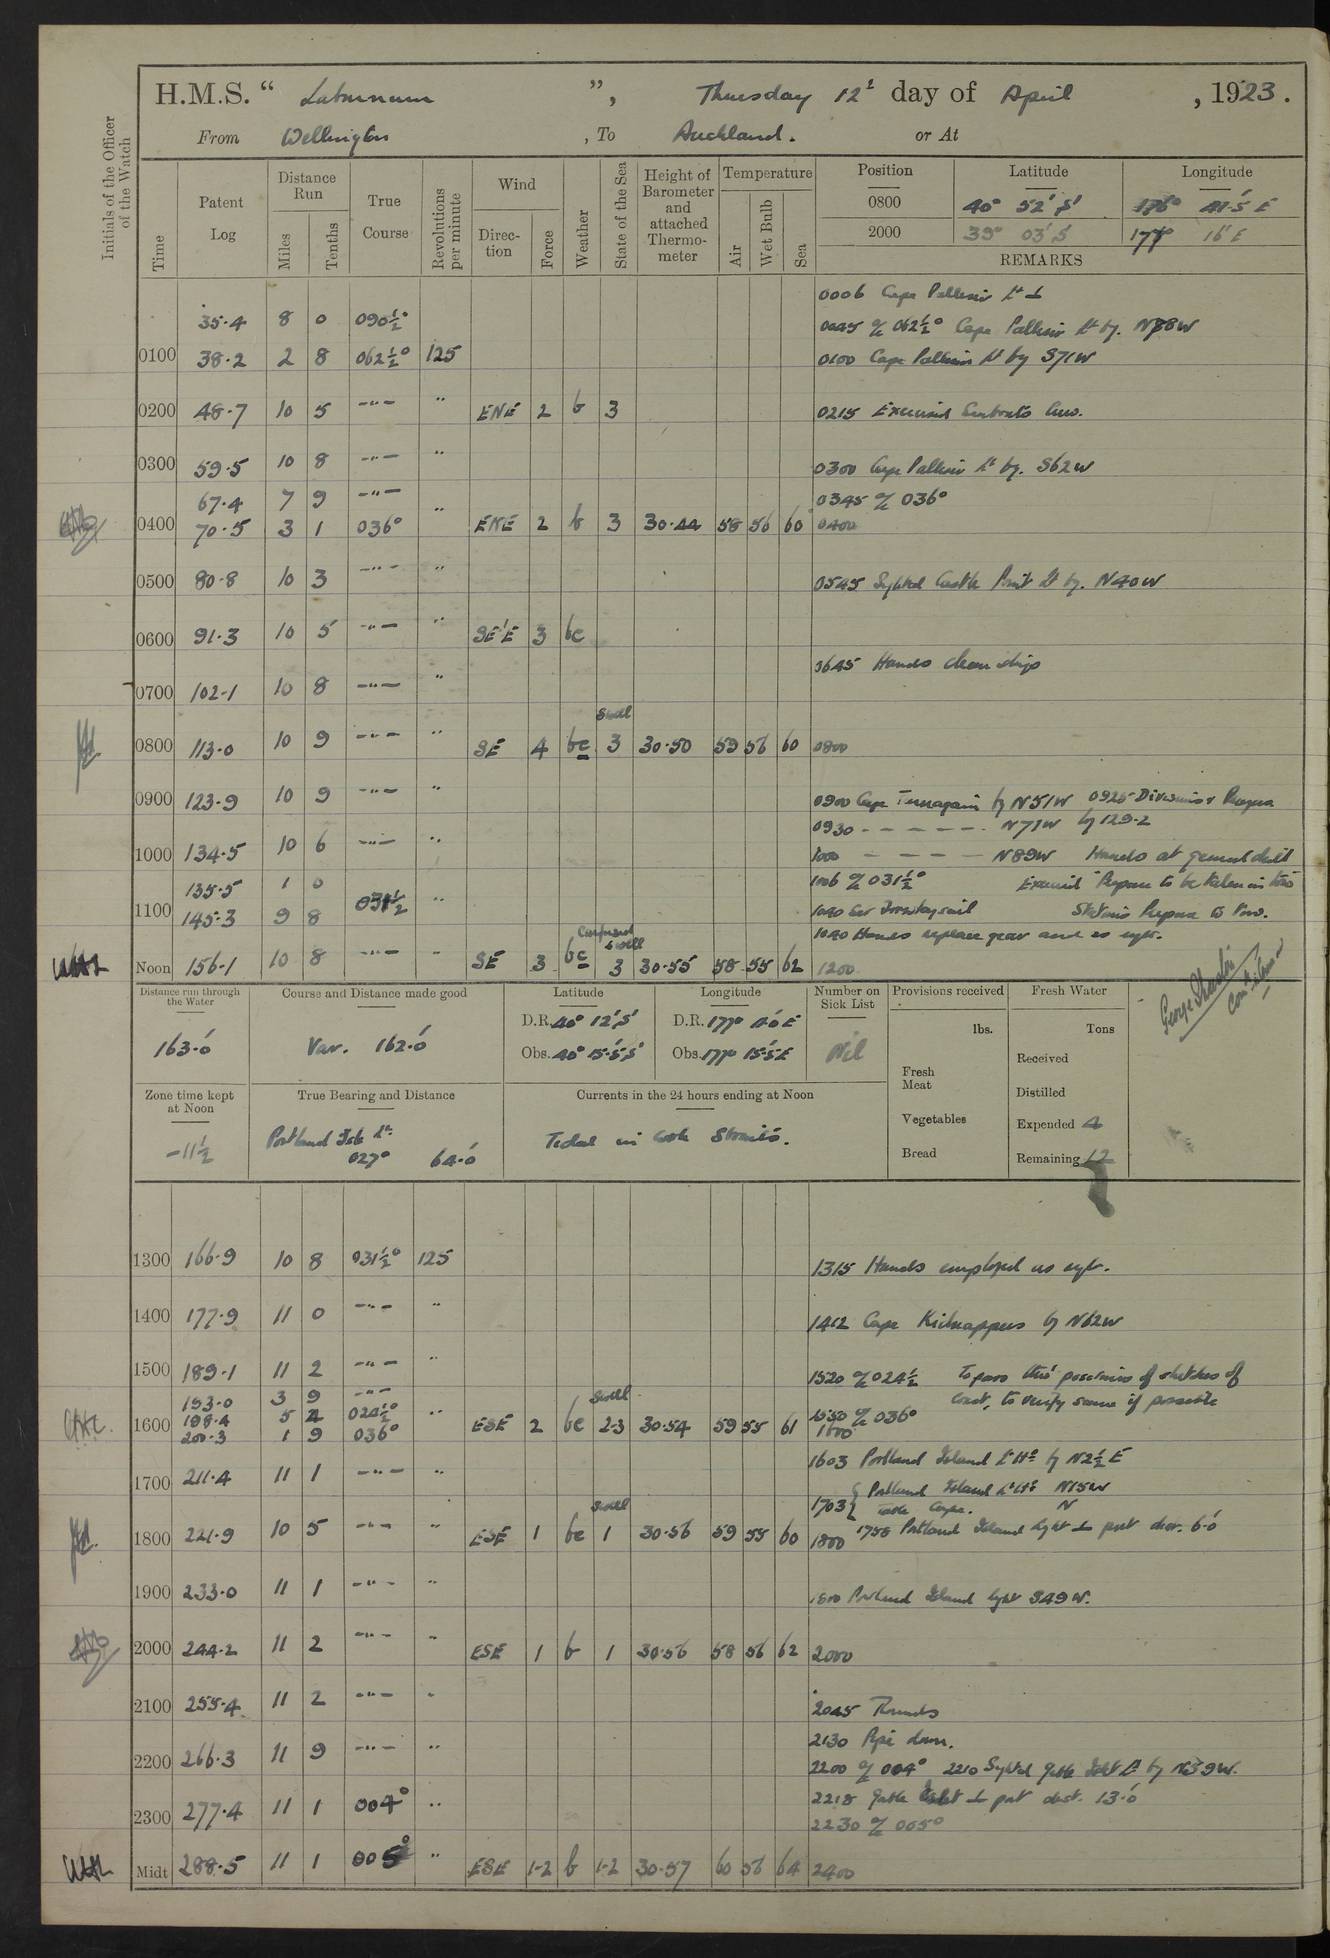 H.M.S. “ Laburnum ”, Thursday 12th day of April , 1923.
From Wellington , To Auckland. or At
Initials of the Officer of the Watch
Time
Patent Log
Distance Run
Miles
Tenths
True Course
Revolutions per minute
Wind
Direction
Force
Weather
State of the Sea
Height of Barometer and attached Thermometer
Temperature
Air
Wet Bulb
Sea
Position Latitude Longitude
0800 40° 52' S' 176° 41·5 E
2000 39° 03' S 178° 16' E
REMARKS
0006 Cape Palliser Lt ⊥
35·4 8 0 090½°
0045 062½° Cape Palliser Lt by. N88W
0100 38·2 2 8 062½° 125 0100 Cape Palliser Lt by S71W
0200 48·7 10 5 -"- " ENE 2 b 3 0215 Exercised Seaboats Crew.
0300 59·5 10 8 -"- " 0300 Cape Palliser Lt by. S62W
67·4 7 9 -"- 0345 036°
0400 70·5 3 1 036° " ENE 2 b 3 30·44 58 56 60 0400
0500 80·8 10 3 -"- " 0545 Sighted Castle Point Lt by. N40W
0600 91·3 10 5 -"- " SE'E 3 bc
0645 Hands clean ship
0700 102·1 10 8 -"- "
Swell
0800 113·0 10 9 -"- " SE 4 bc 3 30·50 59 56 60 0800
0900 123·9 10 9 -"- " 0900 Cape Turnagain by N51W 0925 Divisions & Prayers
0930 - - - - - - N71W by 129·2
1000 134·5 10 6 -"- " 1000 - - - - N89W Hands at general drill
135·5 1 0 1006 031½° Exercised "Prepare to be taken in tow"
1100 145·3 9 8 031½ " 1040 Set Foresaysail Stations Prepare to Tow.
1040 Hands replace gear and as reqte.
Confused Swell
Noon 156·1 10 8 -"- " SE 3 bc 3 30·55 58 55 62 1200
Distance run through the Water
163·0'
Course and Distance made good
Var. 162·0'
Latitude
D.R. 40° 12' S'
Obs. 40° 15·5' S'
Longitude
D.R. 177° 10' E
Obs. 177° 15·5' E
Number on Sick List
Nil
Provisions received
lbs.
Fresh Meat
Vegetables
Bread
Fresh Water
Tons
Received
Distilled
Expended 4
Remaining 17
Zone time kept at Noon
-11½
True Bearing and Distance
Portland Isle Lt:
027° 64·0'
Currents in the 24 hours ending at Noon
Tidal in Cook Straits.
1300 166·9 10 8 031½° 125 1315 Hands employed as reqte.
1400 177·9 11 0 -"- " 1412 Cape Kidnappers by N62W
1500 189·1 11 2 -"- " 1520 024½ To pass thro' positions of sketches of
coast, to verify same if possible
193·0 3 9 -"-
198·4 5 4 024½° Swell 1550 036°
1600 200·3 1 9 036° " ESE 2 bc 2-3 30·54 59 55 61 1600
1603 Portland Island Lt Hse by N2½E
1700 211·4 11 1 -"- "
1703 { Portland Island Lt Hse N15W
Table Cape. N
Swell
1800 221·9 10 5 -"- " ESE 1 bc 1 30·56 59 55 60 1800 1758 Portland Island light ⊥ port dist. 6·0'
1900 233·0 11 1 -"- " Portland Island light S49W.
2000 244·2 11 2 -"- " ESE 1 b 1 30·56 58 56 62 2000
2100 255·4 11 2 -"- " 2045 Rounds
2130 Pipe down.
2200 266·3 11 9 -"- " 2200 004° 2210 Sighted Gable Islet Lt by N39W.
2218 Gable Islet ⊥ port dist. 13·0'
2300 277·4 11 1 004° " 2230 005°
Midt 288·5 11 1 005° " ESE 1-2 b 1-2 30·57 60 56 64 2400